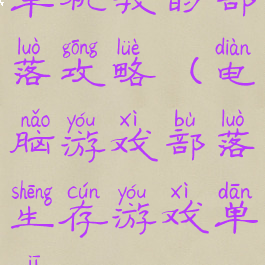 单机我的部
luò gōng lüè diàn
落攻略（电
nǎo yóu xì bù luò
脑游戏部落
shēng cún yóu xì dān
生存游戏单
jī